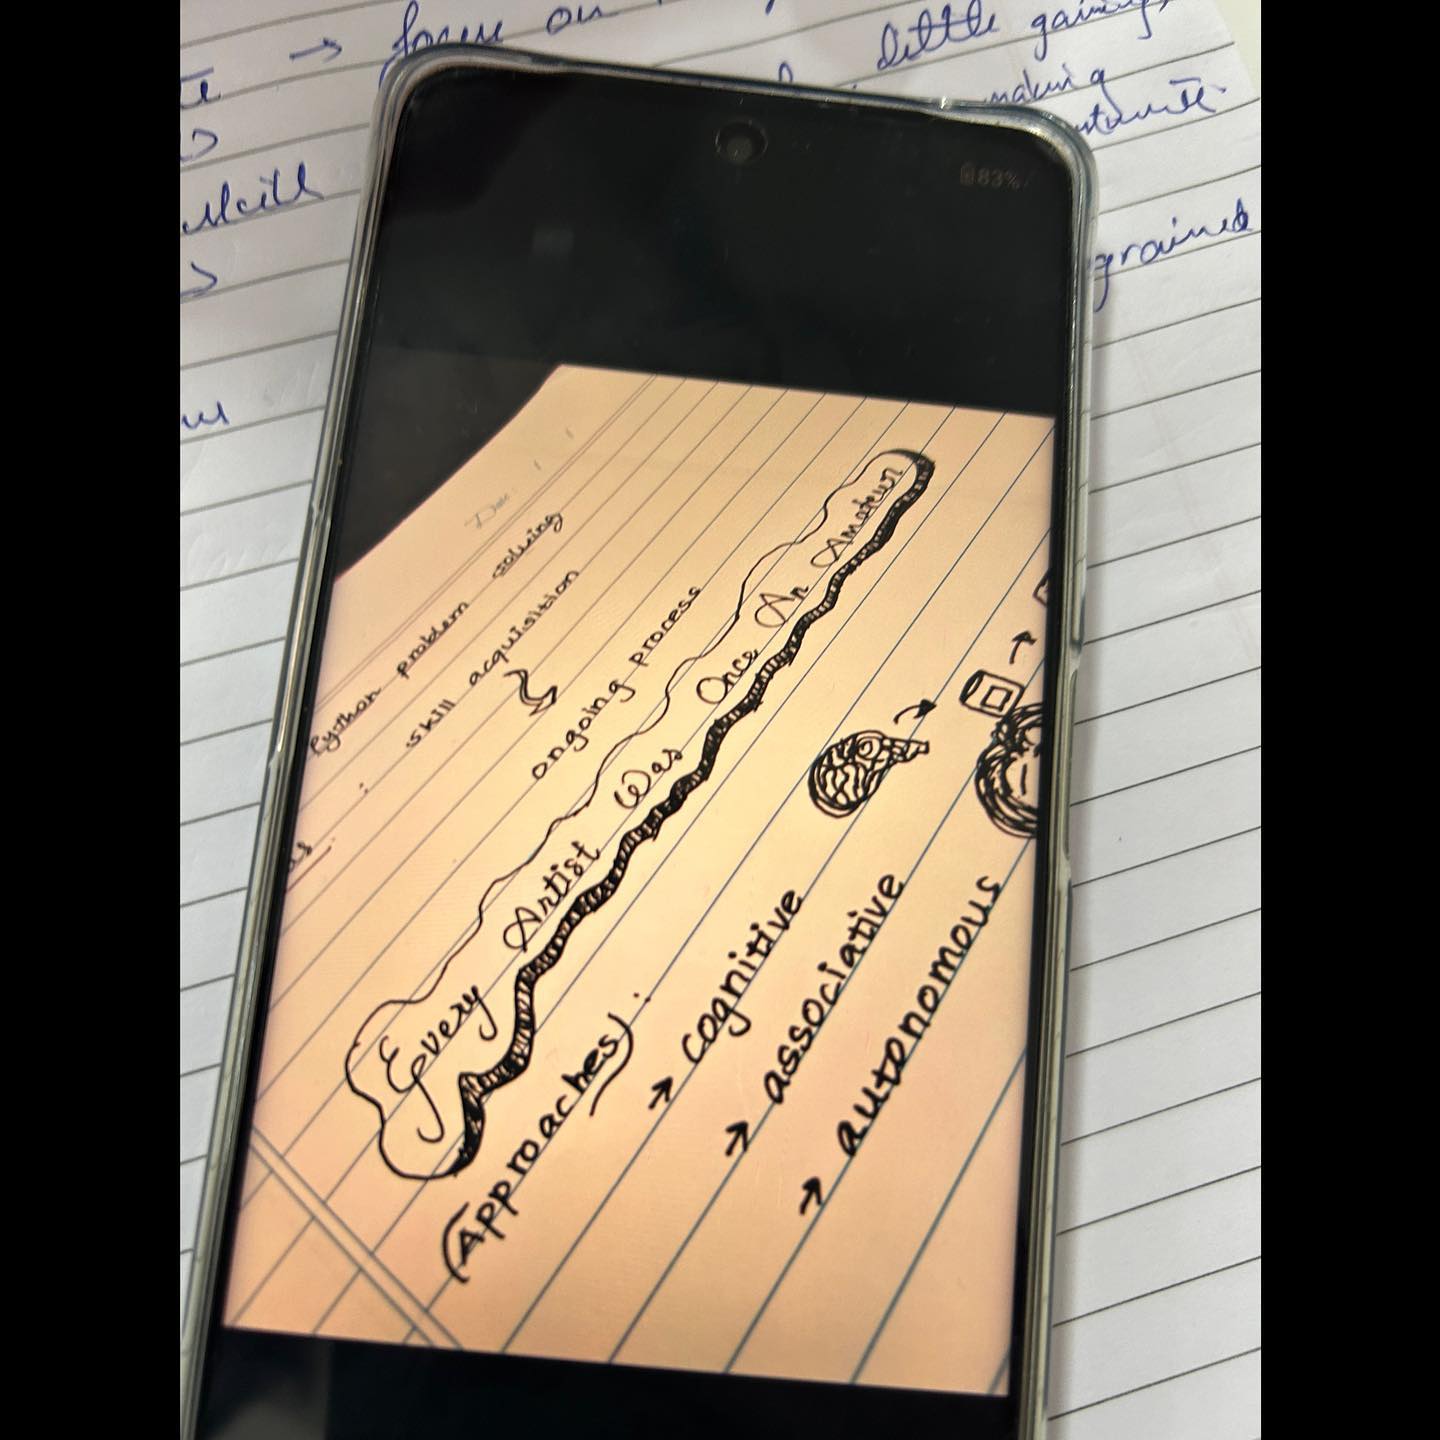 → focus on
little gaining
making
skill
grained
83%
Date
Python problem solving
: skill acquisition
ongoing process
Every Artist Was Once An Amateur
(Approaches) :
→ cognitive
→ associative
→ autonomous